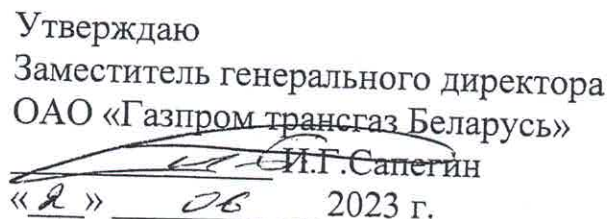 Утверждаю
Заместитель генерального директора
ОАО «Газпром трансгаз Беларусь»
И.Г.Сапегин
«2» 06 2023 г.